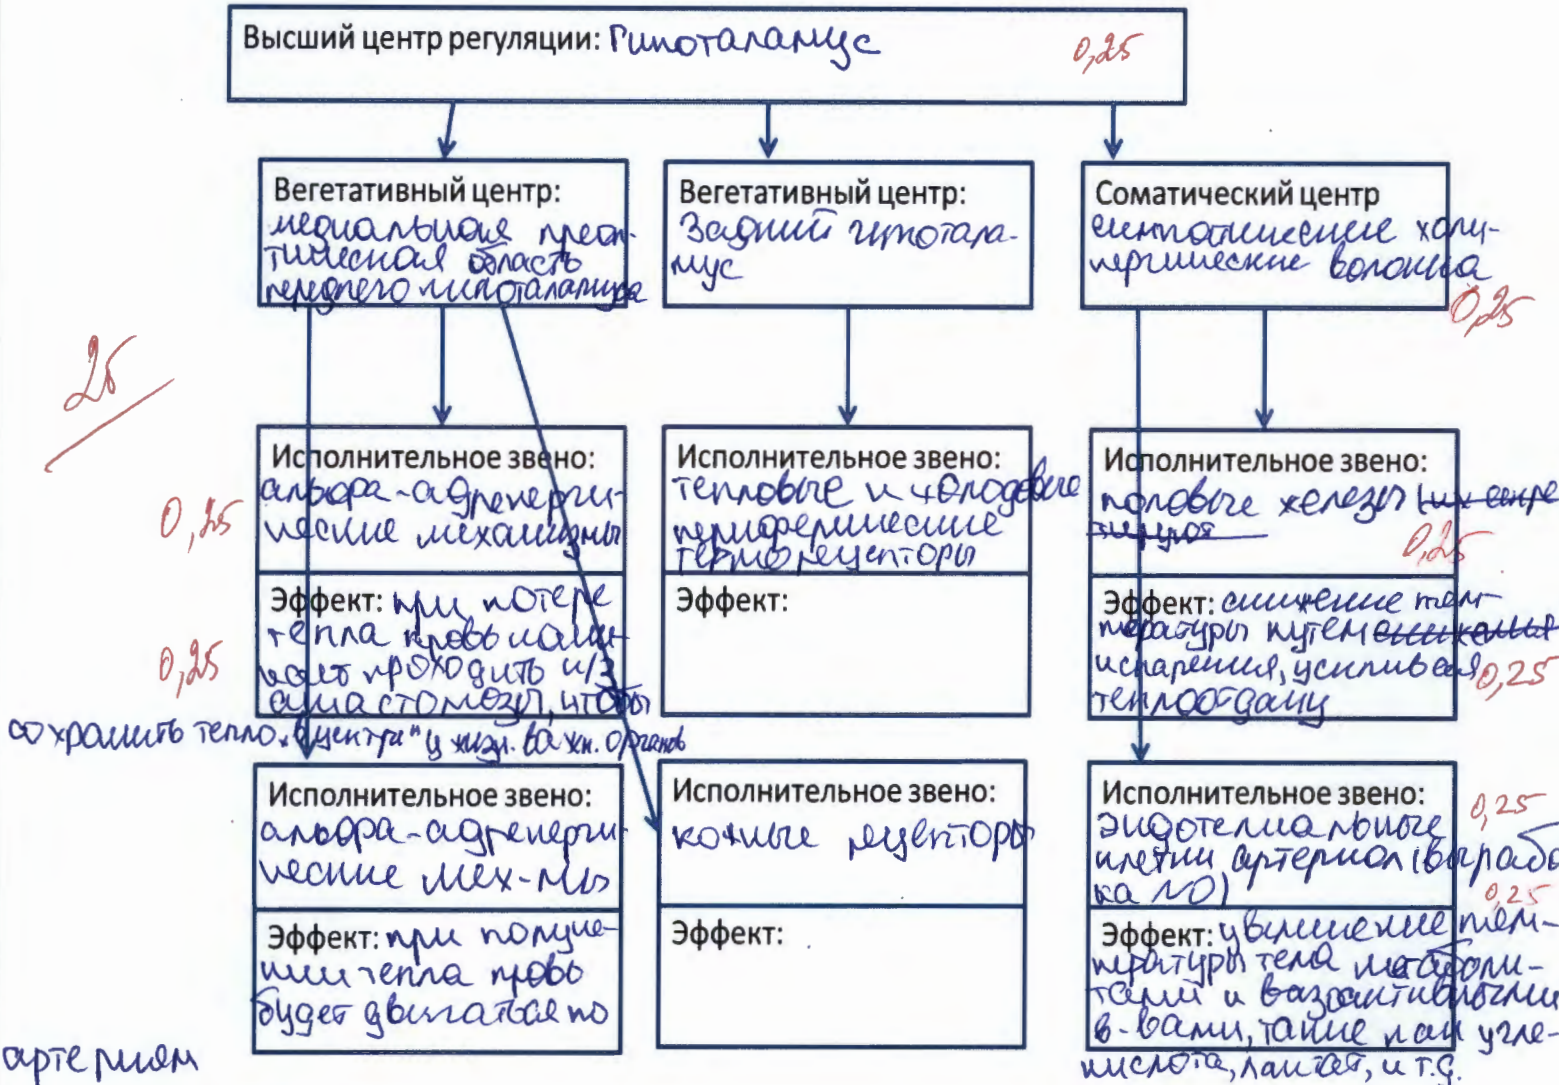 Высший центр регуляции: Гипоталамус
0,25
Вегетативный центр:
медиальная преоп-
тическая область
переднего гипоталамуса
Вегетативный центр:
Задний гипотала-
мус
Соматический центр
симпатические холи-
нергические волокна
0,25
2б
Исполнительное звено:
альфа-адренерги-
ческие механизмы
0,25
Эффект: при потере
тепла кровь начи-
нает проходить ч/з
анастомозы, чтобы
сохранить тепло „в центре" у жизн. важн. органов
0,25
Исполнительное звено:
тепловые и холодовые
периферические
терморецепторы
Эффект:
Исполнительное звено:
половые железы
0,25
Эффект: снижение тем-
пературы путем
испарения, усиливая
теплоотдачу
0,25
Исполнительное звено:
альфа-адренерги-
ческие мех-мы
Эффект: при получе-
нии тепла кровь
будет двигаться по
артериям
Исполнительное звено:
кожные рецепторы
Эффект:
Исполнительное звено:
эндотелиальные
клетки артериол (выработ
ка NO)
0,25
0,25
Эффект: тем-
пературы тела метаболи-
тами и вазоактивными
в-вами, такие как угле-
кислота, лактат, и т.д.